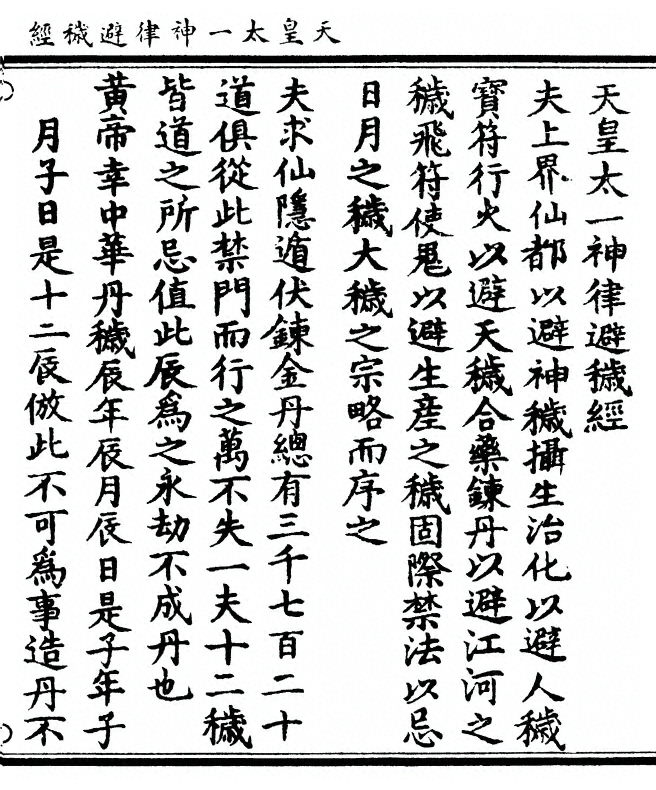 天皇太一神律避穢經
天皇太一神律避穢經
夫上界仙都以避神穢攝生治化以避人穢
寶符行火以避天穢合藥鍊丹以避江河之
穢飛符使鬼以避生産之穢固際禁法以忌
日月之穢大穢之宗略而序之
夫求仙隱遁伏鍊金丹總有三千七百二十
道俱從此禁門而行之萬不失一夫十二穢
皆道之所忌值此辰爲之永劫不成丹也
黄帝幸中華丹穢辰年辰月辰日是子年子
月子日是十二辰倣此不可爲事造丹不